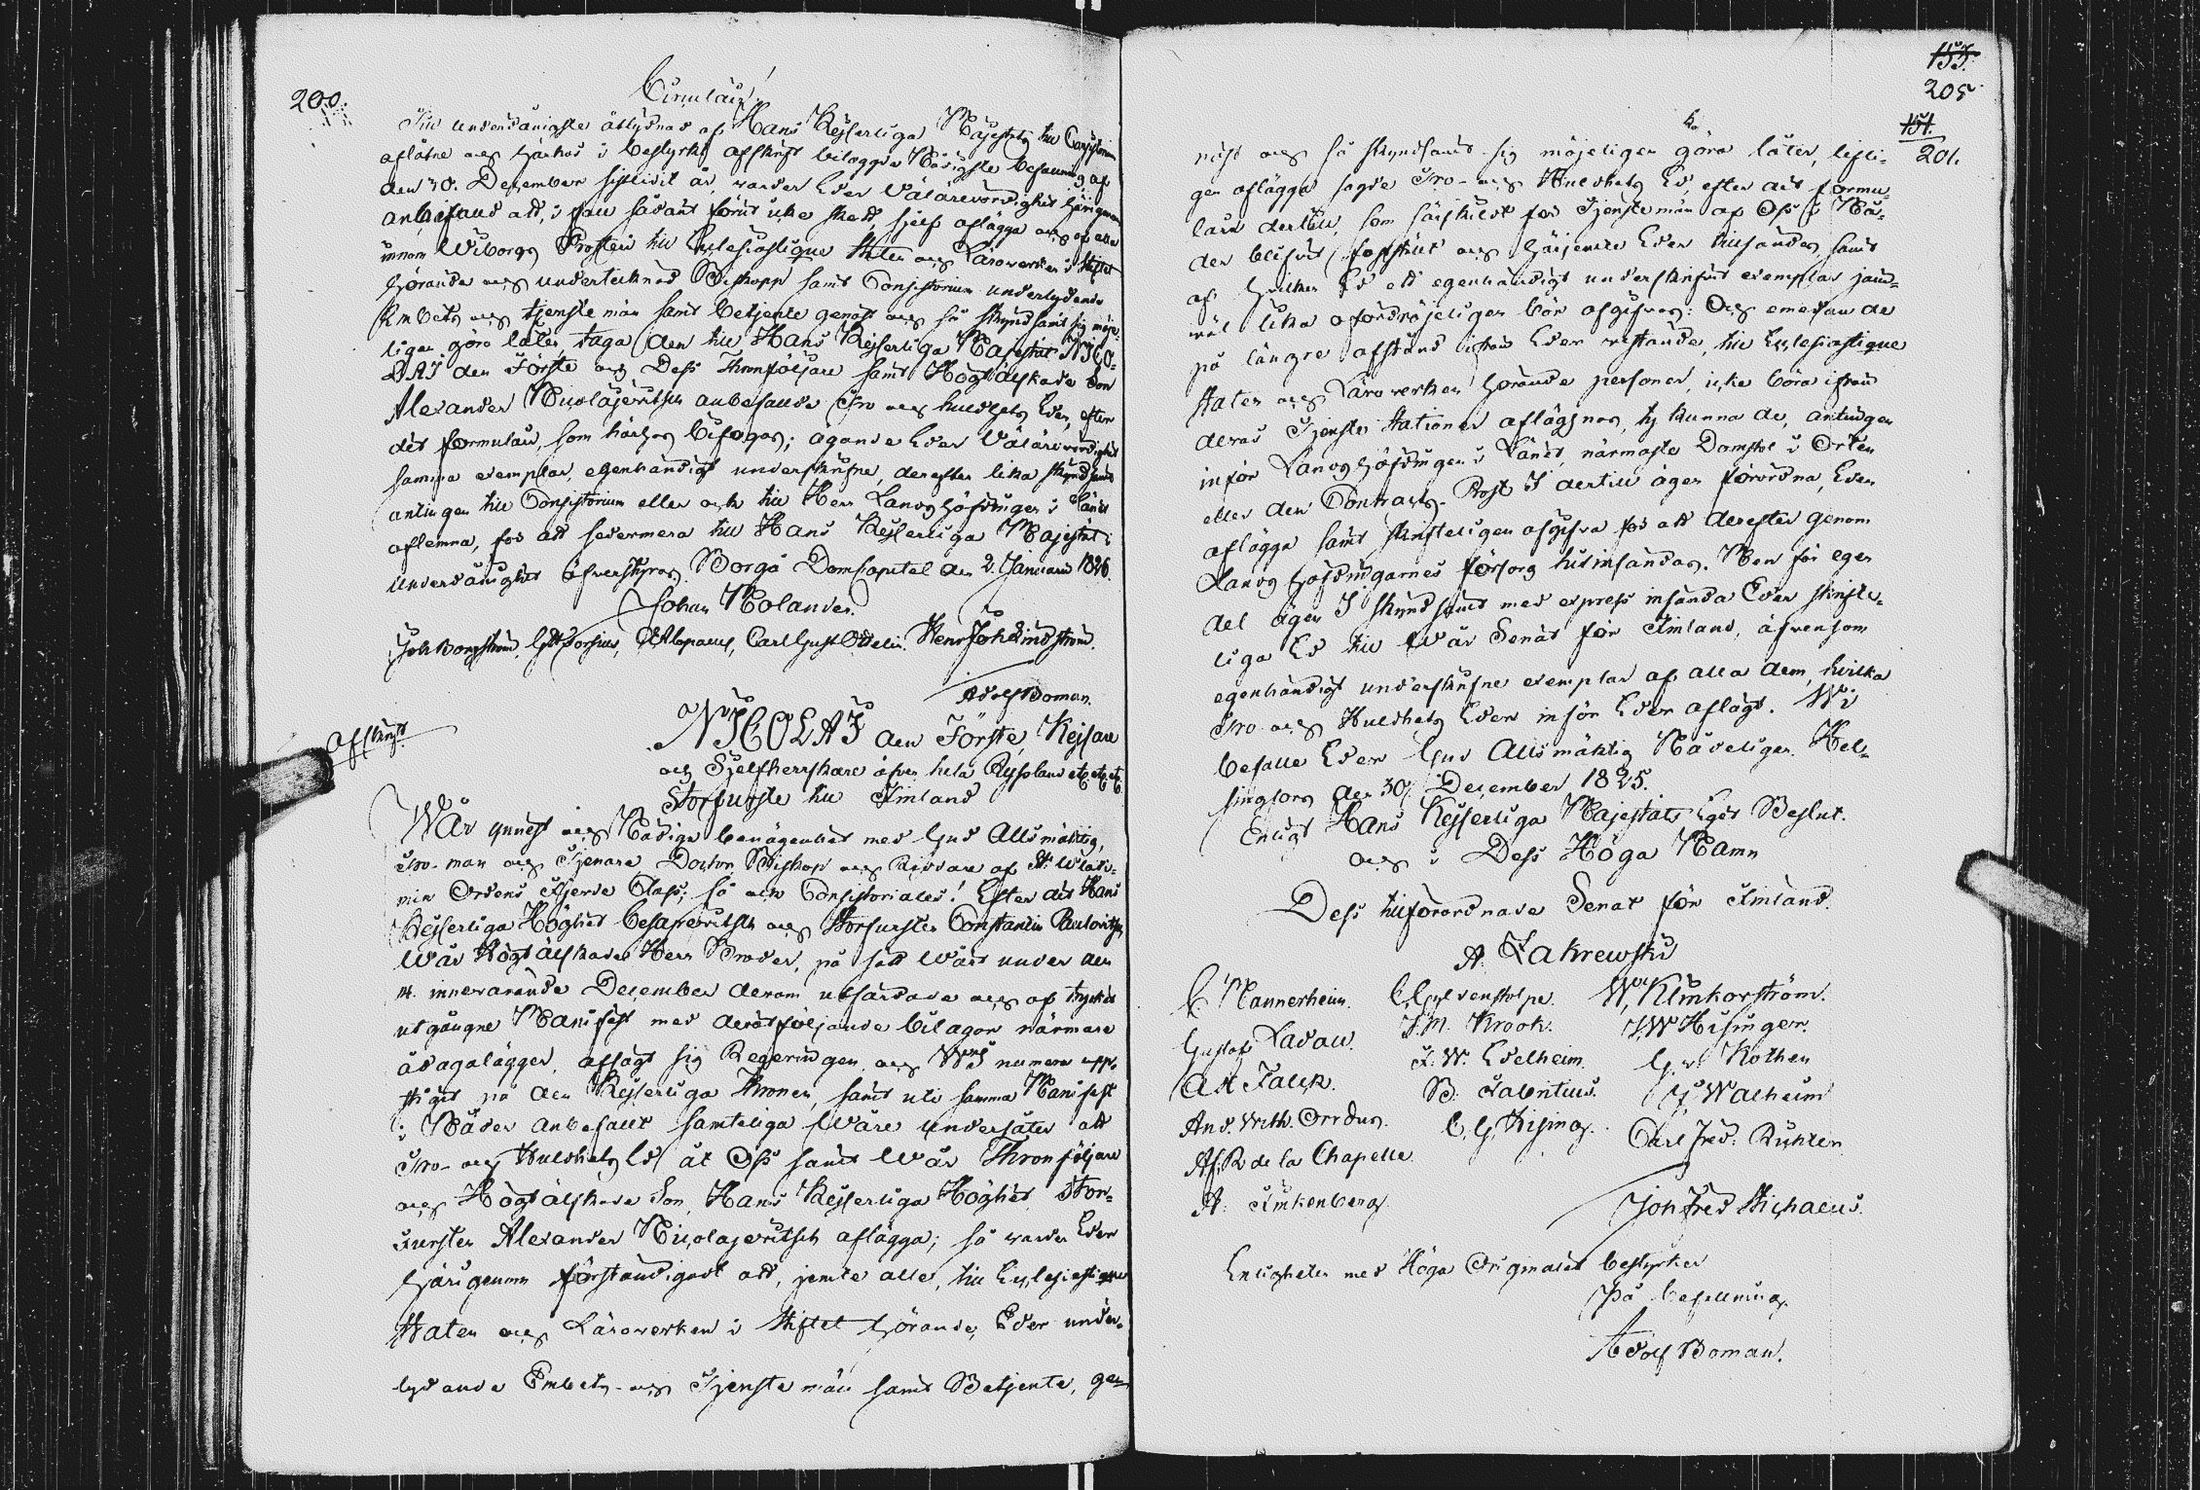 200.
Circulair!
Till underdånigste åtlydnad af Hans Kejserliga Majestäts till Consistorium
aflåtne och härhos i bestyrkt afskrift bilagde Nådigste befallning af
den 30. December sistlidit år, varder Eder Välärevördighet härigenom
anbefald att, i fall sådant förut icke skedt, sjelf aflägga och af alla
innom Wiborgs Prosteri till Ecclesiastique Staten och Läroverken i Stiftet
hörande och undertecknad Biskopp samt Consistorium underlydande
Embets och tjenstemän samt betjente genast och så skyndsamt sig möje-
ligen göra låter, taga den till Hans Kejserliga Majestät NICO-
LAI den Förste och Dess Thronföljare samt Högtälskade Son
Alexander Nicolajevitsch anbefallde Tro och huldhets Eden, efter
det formulair, som härhos bifogas; ägande Eder Välärevördighet
samma exemplar, egenhändigt underskrifne, derefter lika skyndsamt
antingen till Consistorium eller ock till Herr Landshöfdingen i Länet
aflemna, för att sedermera till Hans Kejserliga Majestät i
underdånighet öfverstyras. Borgå DomCapitel den 2. Januarii 1826.
Johan Molander.
Joh Borgström, G Alopaeus, Carl Gust Ottelin. Henr Joh Lindström.
Adolf Boman.
Afskrift.
NICOLAI den Förste, Kejsare
och Sjelfherrskare öfver hela Ryssland etc. etc. etc.
Storfurste till Finland
Wår ynnest och Nådiga benägenhet med Gud Allsmäktig,
Tro-man och Tjenare Doctor, Biskop och Riddare af St. Wladi-
mir Ordens fjerde Class; så ock Consistoriales! Efter det Hans
Kejserliga Höghet Cesarevitsch och Storfursten Constantin Paulovitsch
Wår Högtälskade Herr Broder, på sätt Wårt under den
14. innevarande December derom utfärdade och af trycket
utgångne Manifest med deråtföljande bilagor närmare
ådagalägger, afsagt sig Regeringen, och WI numera upp-
stigit på den Kejserliga Thronen, samt uti samma Manifest
i Nåder anbefallt samteliga Wåre undersåter att
Tro- och Huldhets Ed åt Oss samt Wår Thronföljare
och Högtälskade Son, Hans Kejserliga Höghet Stor-
Fursten Alexander Nicolajevitsch aflägga; så varder Eder
härigenom förständigadt att, jemte alla, till Ecclesiastique
Staten och Läroverken i Stiftet hörande, Eder under-
lydande Embets- och Tjenstemän samt Betjente, ge-
155.
205
151.
201.
nast och så skyndsamt sig möjeligen göra låter, lifli-
gen aflägga sagde Tro- och Huldhets Ed, efter det formu-
lair dertill, som särskildt för Tjenstemän af Oss i Nå-
der blifvit fastställt och härjemte Eder tillsändes, samt
af hvilken Ed ett egenhändigt underskrifvit exemplar jemn-
väl lika ofördröjeligen bör afgifvas: Och emedan de
på längre afstånd ifrån Eder vistande, till Ecclesiastique
Staten och Läroverken hörande personer, icke böra ifrån
deras Tjenste Stationer aflägsnas, ty kunna de, antingen
inför Landshöfdingen i Länet, närmaste Domstol i Orten
eller den Contracts-Prost I dertill ägen förordna, Eden
aflägga samt skrifteligen afgifva för att derefter genom
Landshöfdingarnes försorg hitinsändas. Men för egen
del ägen I skyndsamt med express insända Eder skrifte-
liga Ed till Wår Senat för Finland, äfvensom
egenhändigt underskrifne exemplar af alla dem, hvilka
Tro- och Huldhets Eden inför Eder aflagt. Wi
befalle Eder Gud Allsmäktig Nådeligen. Hel-
singfors den 30. December 1825.
Enligt Hans Kejserliga Majestäts Eget Beslut.
och i Dess Höga Namn
Dess tillförordnade Senat för Finland.
A. Zakrewski
C. Mannerheim. C Gyldenstolpe. W. Klinkowström.
Gustaf Ladau. J. M. Krook. J. W Hisinger.
A F Falck. F. W. Edelheim. G. v Kothen
And. Wilh. Orrhus. B. Falentius. J. Walheim
Af. R de la Chapelle C. G. Hising. Carl Fred: Richter
A: Finkenberg.
Joh Fred Stichaeus.
Enligheten med Höga Originalet bestyrker
På befallning
Adolf Boman.